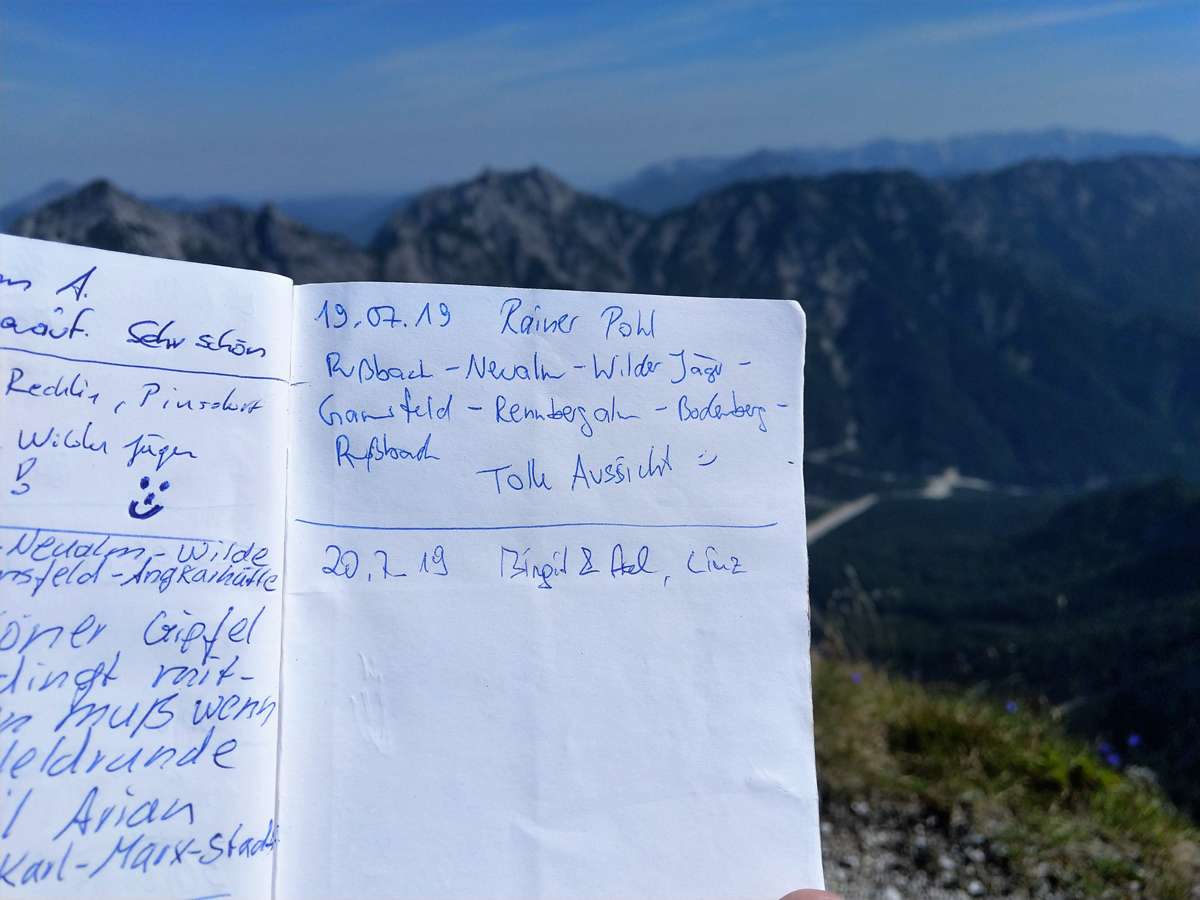 A.
Sehr schön
Rechlin, Pinsdorf
Wilder Jäger
-Neualm-Wilde
nsfeld-Angkarhütte
öner Gipfel
dingt mit-
n muß wenn
feldrunde
l Arian
Karl-Marx-Stadt
19.07.19 Rainer Pohl
Rußbach - Neualm - Wilder Jäger -
Gamsfeld - Rennbergalm - Bodenberg -
Rußbach
Tolle Aussicht
20.7.19 Birgit & Axel, Linz